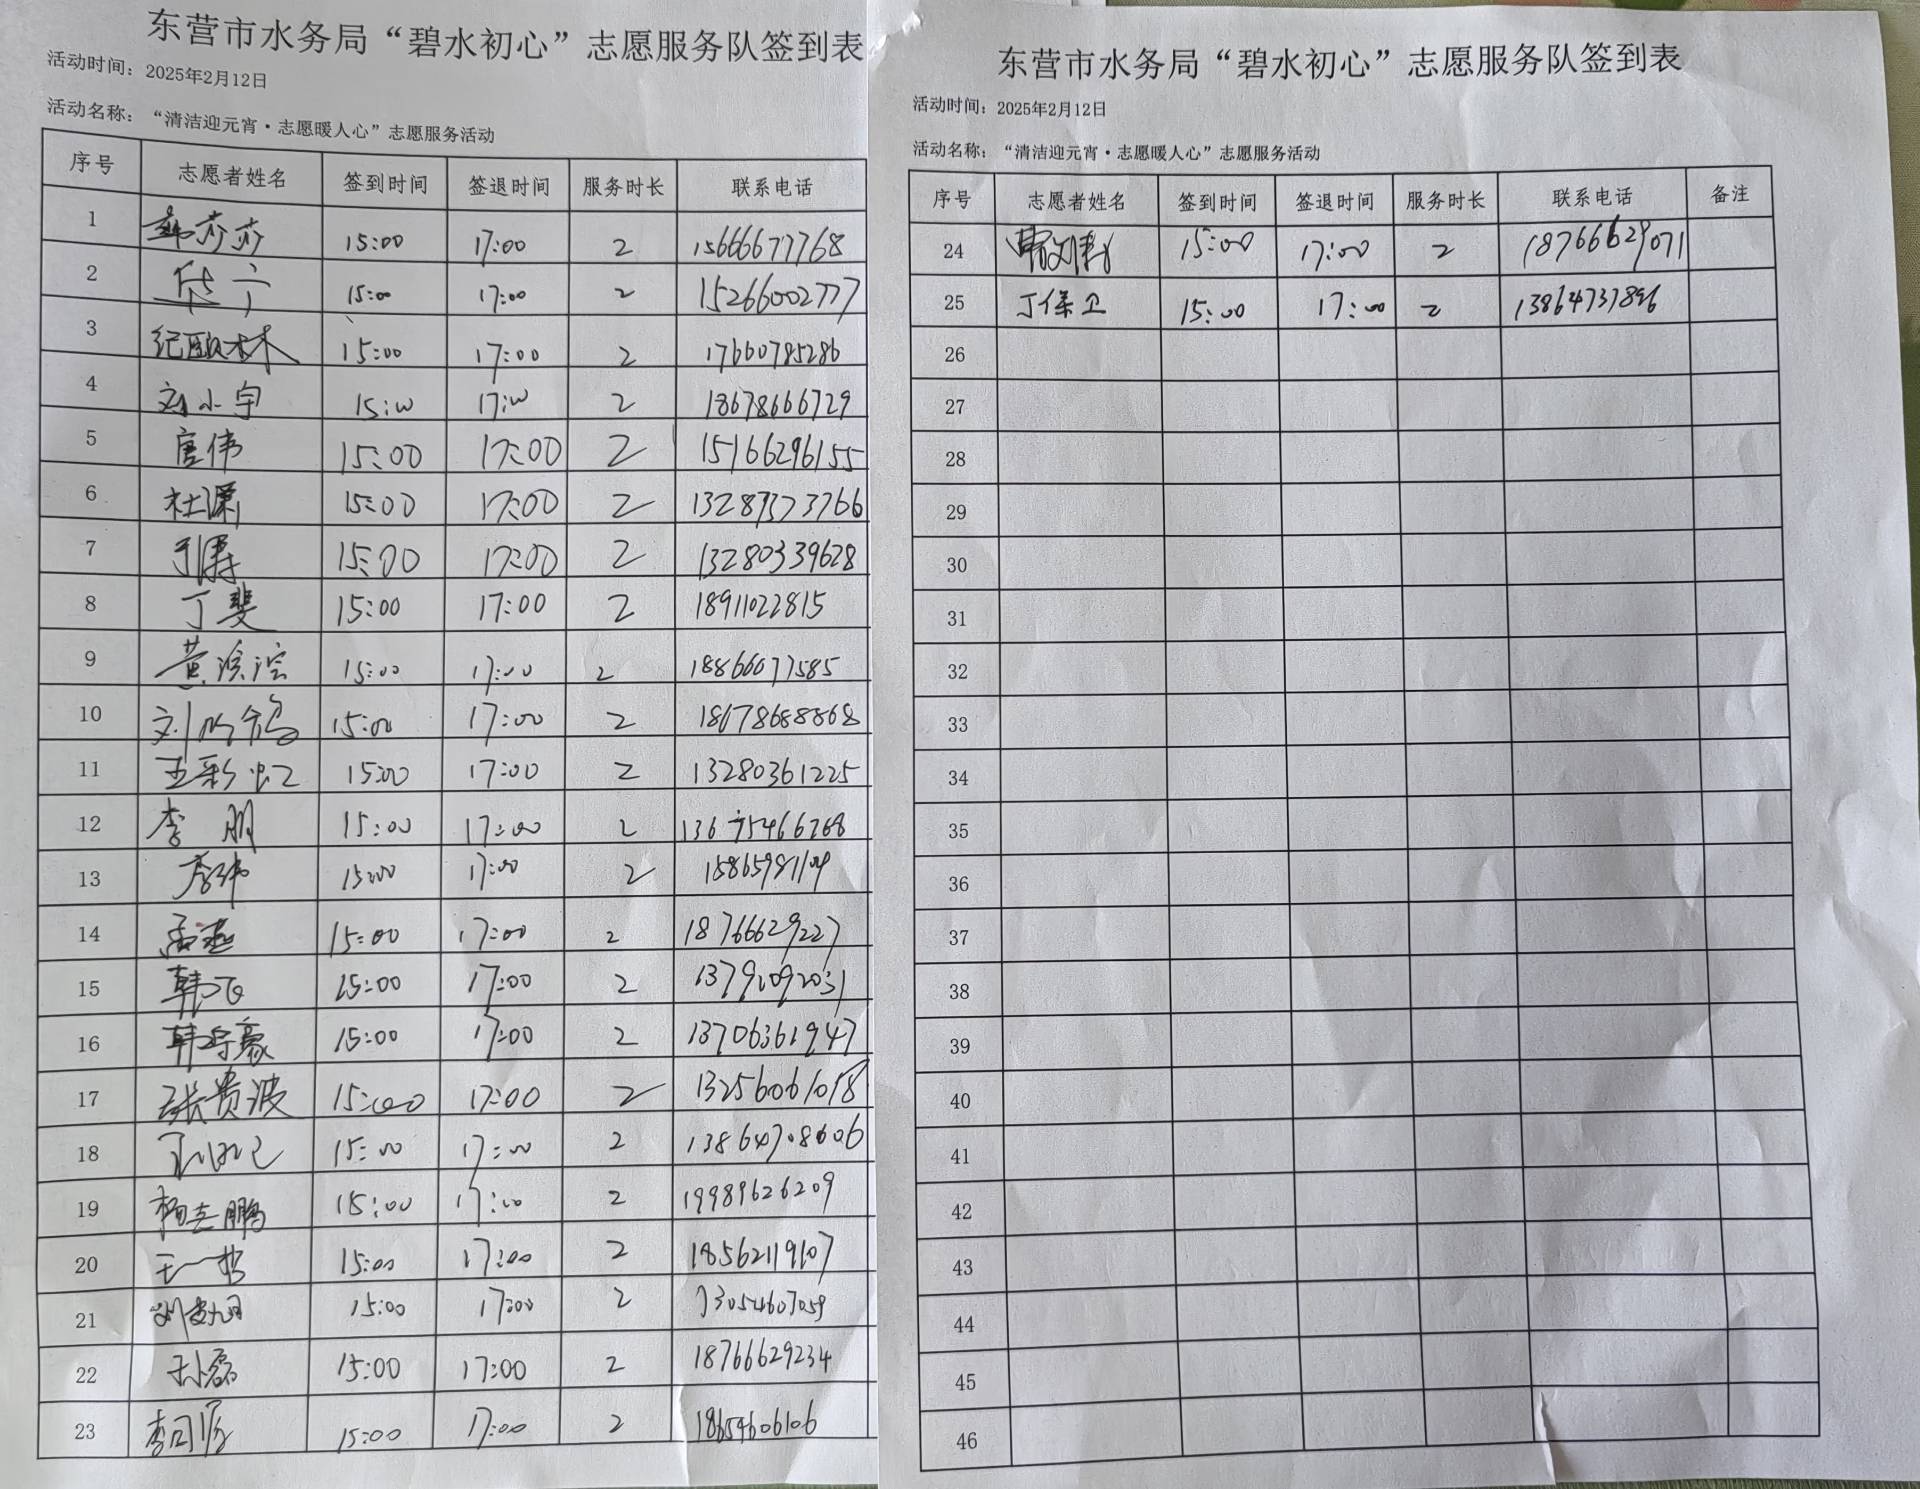 东营市水务局“碧水初心”志愿服务队签到表
活动时间：2025年2月12日
活动名称：“清洁迎元宵·志愿暖人心”志愿服务活动
序号 志愿者姓名 签到时间 签退时间 服务时长 联系电话
1 韩莎莎 15:00 17:00 2 15666677768
2 15:00 17:00 2 15266002777
3 15:00 17:00 2 17660785286
4 刘小宇 15:00 17:00 2 18678666729
5 唐伟 15:00 17:00 2 15166296155
6 杜潇 15:00 17:00 2 13287373766
7 15:00 17:00 2 13280339628
8 丁斐 15:00 17:00 2 18911022815
9 15:00 17:00 2 18866077585
10 15:00 17:00 2 18678688868
11 王彩虹 15:00 17:00 2 13280361225
12 李朋 15:00 17:00 2
13 李玮 15:00 17:00 2
14 孟燕 15:00 17:00 2 18766629227
15 韩飞 15:00 17:00 2
16 15:00 17:00 2 13706361947
17 张贵波 15:00 17:00 2 13256061018
18 15:00 17:00 2 13864708606
19 杨志鹏 15:00 17:00 2 19989626209
20 15:00 17:00 2 18562119107
21 15:00 17:00 2
22 孙磊 15:00 17:00 2 18766629234
23 15:00 17:00 2 18654606106
东营市水务局“碧水初心”志愿服务队签到表
活动时间：2025年2月12日
活动名称：“清洁迎元宵·志愿暖人心”志愿服务活动
序号 志愿者姓名 签到时间 签退时间 服务时长 联系电话 备注
24 15:00 17:00 2 18766629071
25 丁保卫 15:00 17:00 2
26
27
28
29
30
31
32
33
34
35
36
37
38
39
40
41
42
43
44
45
46